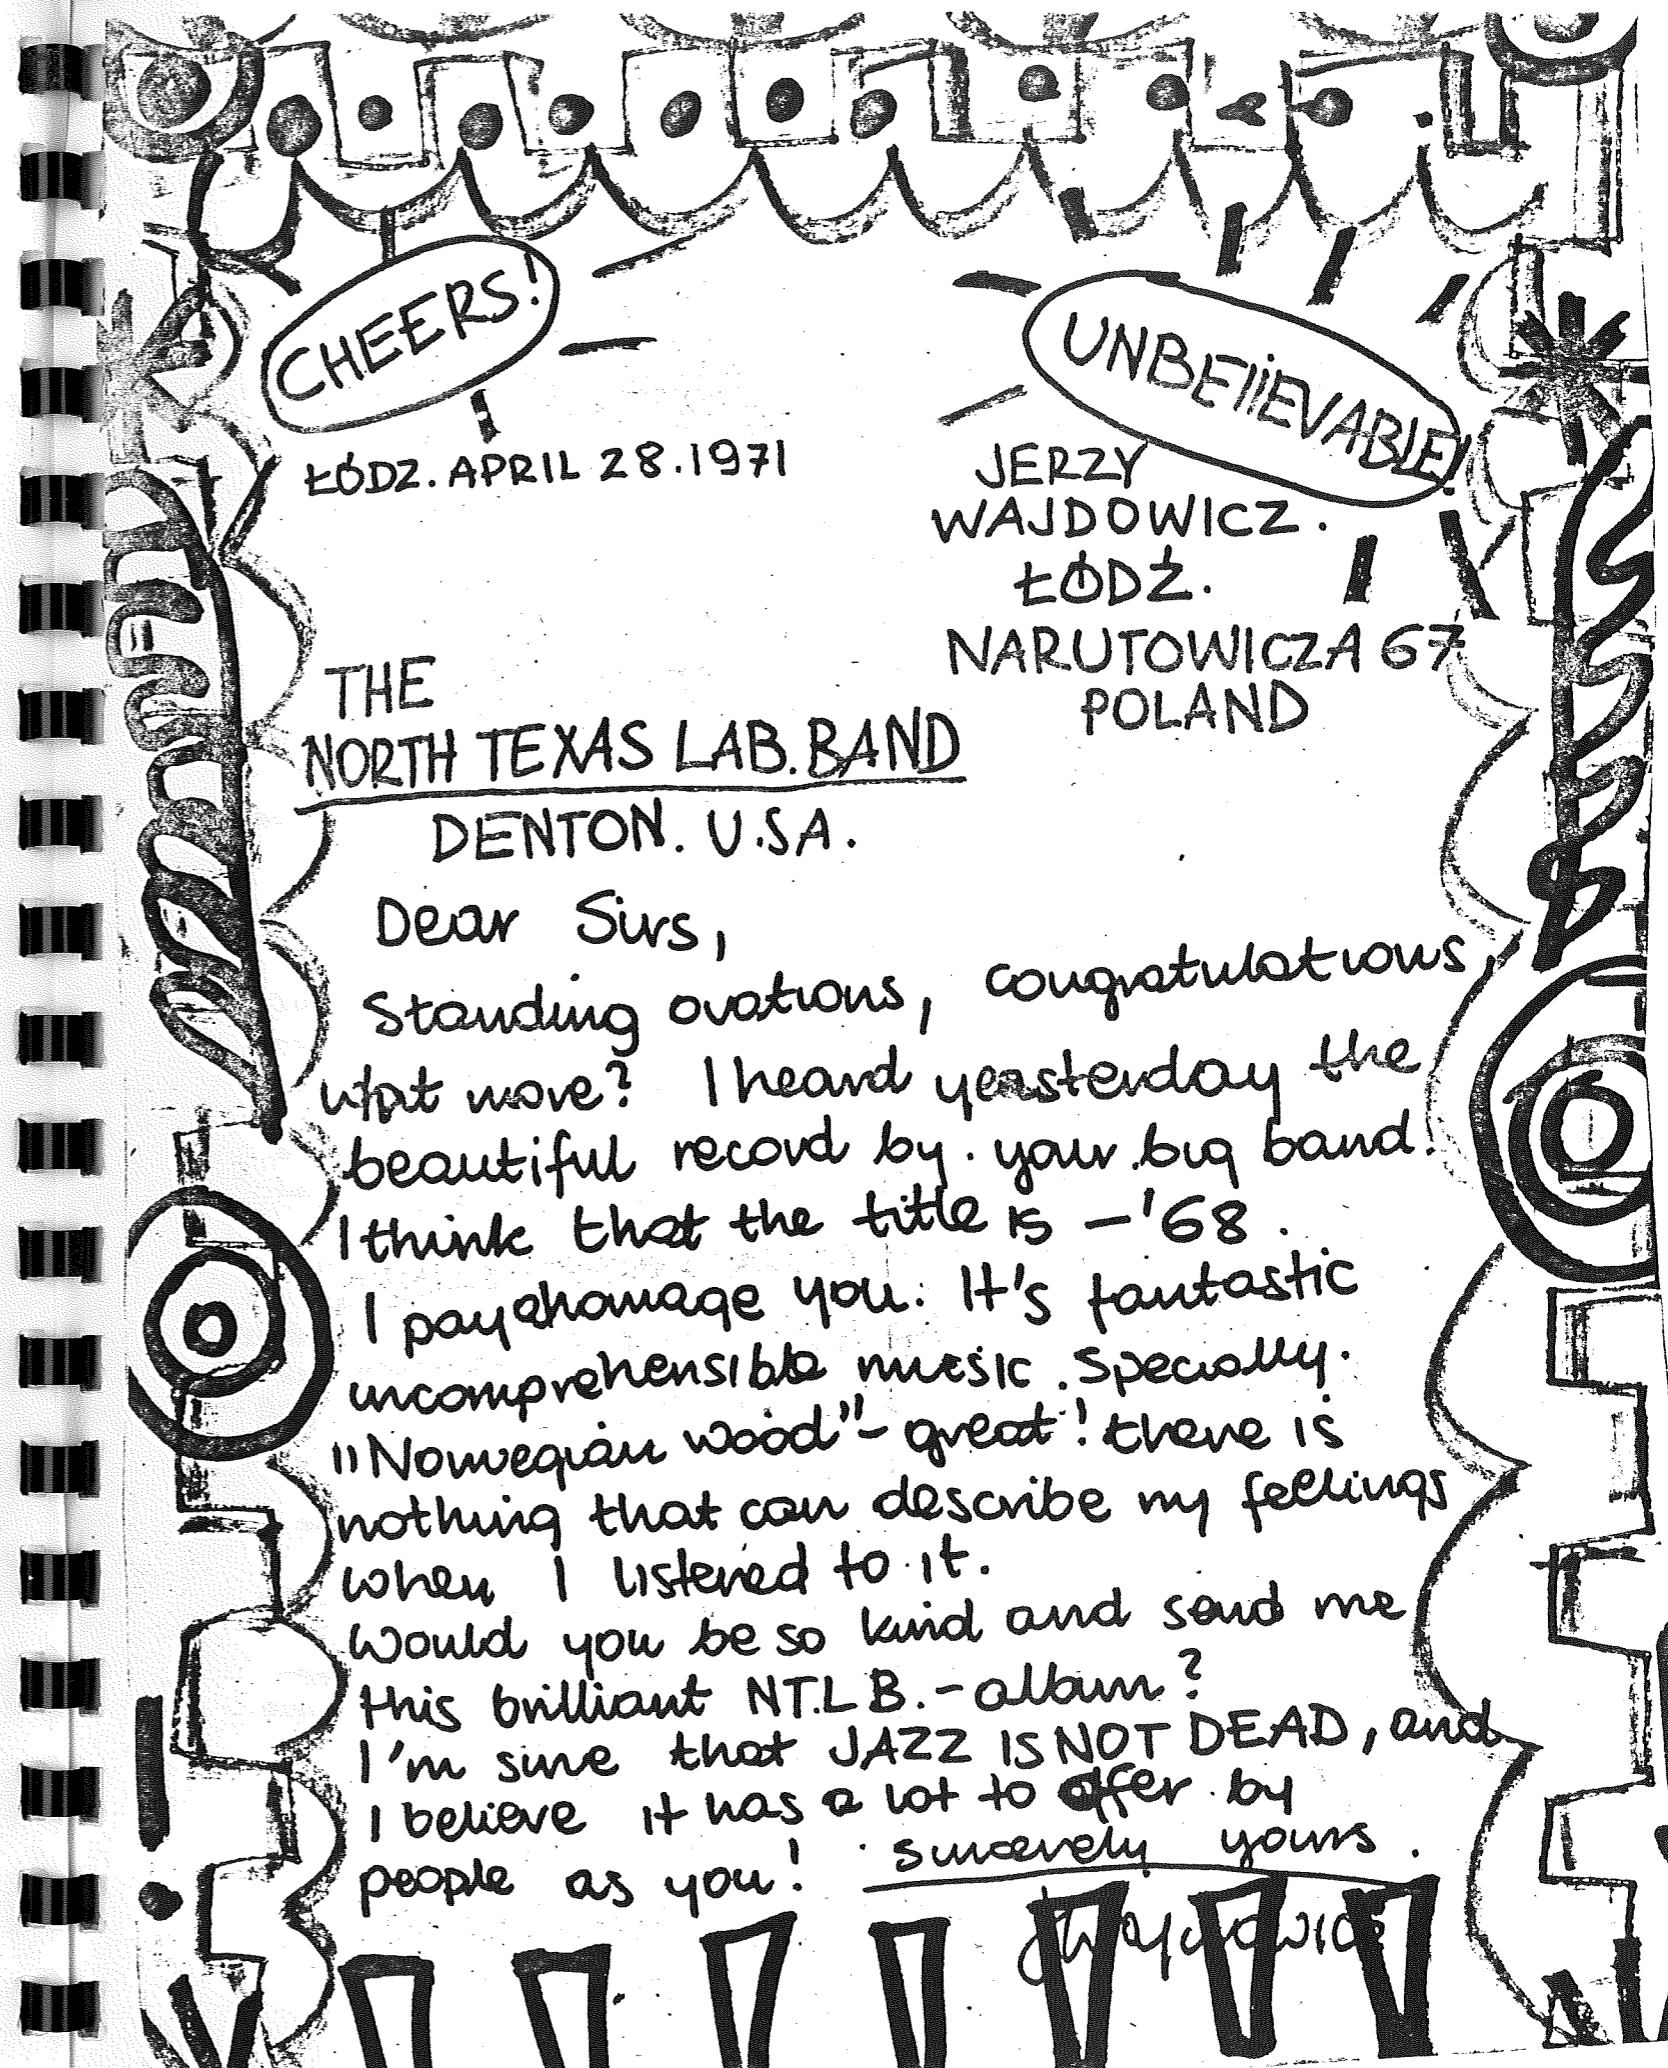 CHEERS!
UNBELIEVABLE!
ŁÓDZ. APRIL 28.1971
JERZY
WAJDOWICZ.
ŁÓDŹ.
NARUTOWICZA 67
POLAND
THE
NORTH TEXAS LAB. BAND
DENTON. U.S.A.
Dear Sirs,
Standing ovations, congratulations,
what more? I heard yeasterday the
beautiful record by. your big band.
I think that the title is – '68.
I pay homage you. It's fantastic
uncomprehensible music. Specially.
"Norwegian wood" – great! there is
nothing that can describe my feellings
when I listened to it.
Would you be so kind and send me
this brilliant N.T.L.B. – album?
I'm sure that JAZZ IS NOT DEAD, and
I believe it has a lot to offer by
people as you! sincerely yours.
JWajdowicz